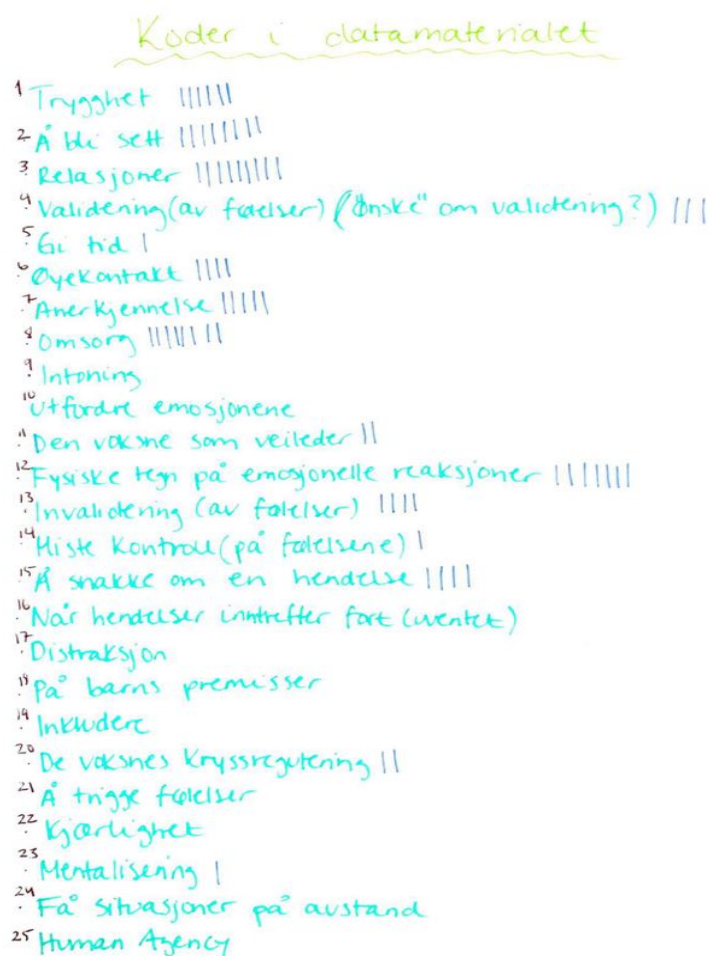 Koder i datamaterialet
1 Trygghet ||||||
2 Å bli sett ||||||||
3 Relasjoner |||||||||
4 Validering (av følelser) ("Ønske" om validering?) |||
5 Gi tid |
6 Øyekontakt ||||
7 Anerkjennelse |||||
8 Omsorg |||||||
9 Intoning
10 Utfordre emosjonene
11 Den voksne som veileder ||
12 Fysiske tegn på emosjonelle reaksjoner |||||||
13 Invalidering (av følelser) ||||
14 Miste kontroll (på følelsene) |
15 Å snakke om en hendelse ||||
16 Når hendelser inntreffer fort (uventet)
17 Distraksjon
18 På barns premisser
19 Inkludere
20 De voksnes kryssregulering ||
21 Å trigge følelser
22 Kjærlighet
23 Mentalisering |
24 Få situasjoner på avstand
25 Human Agency